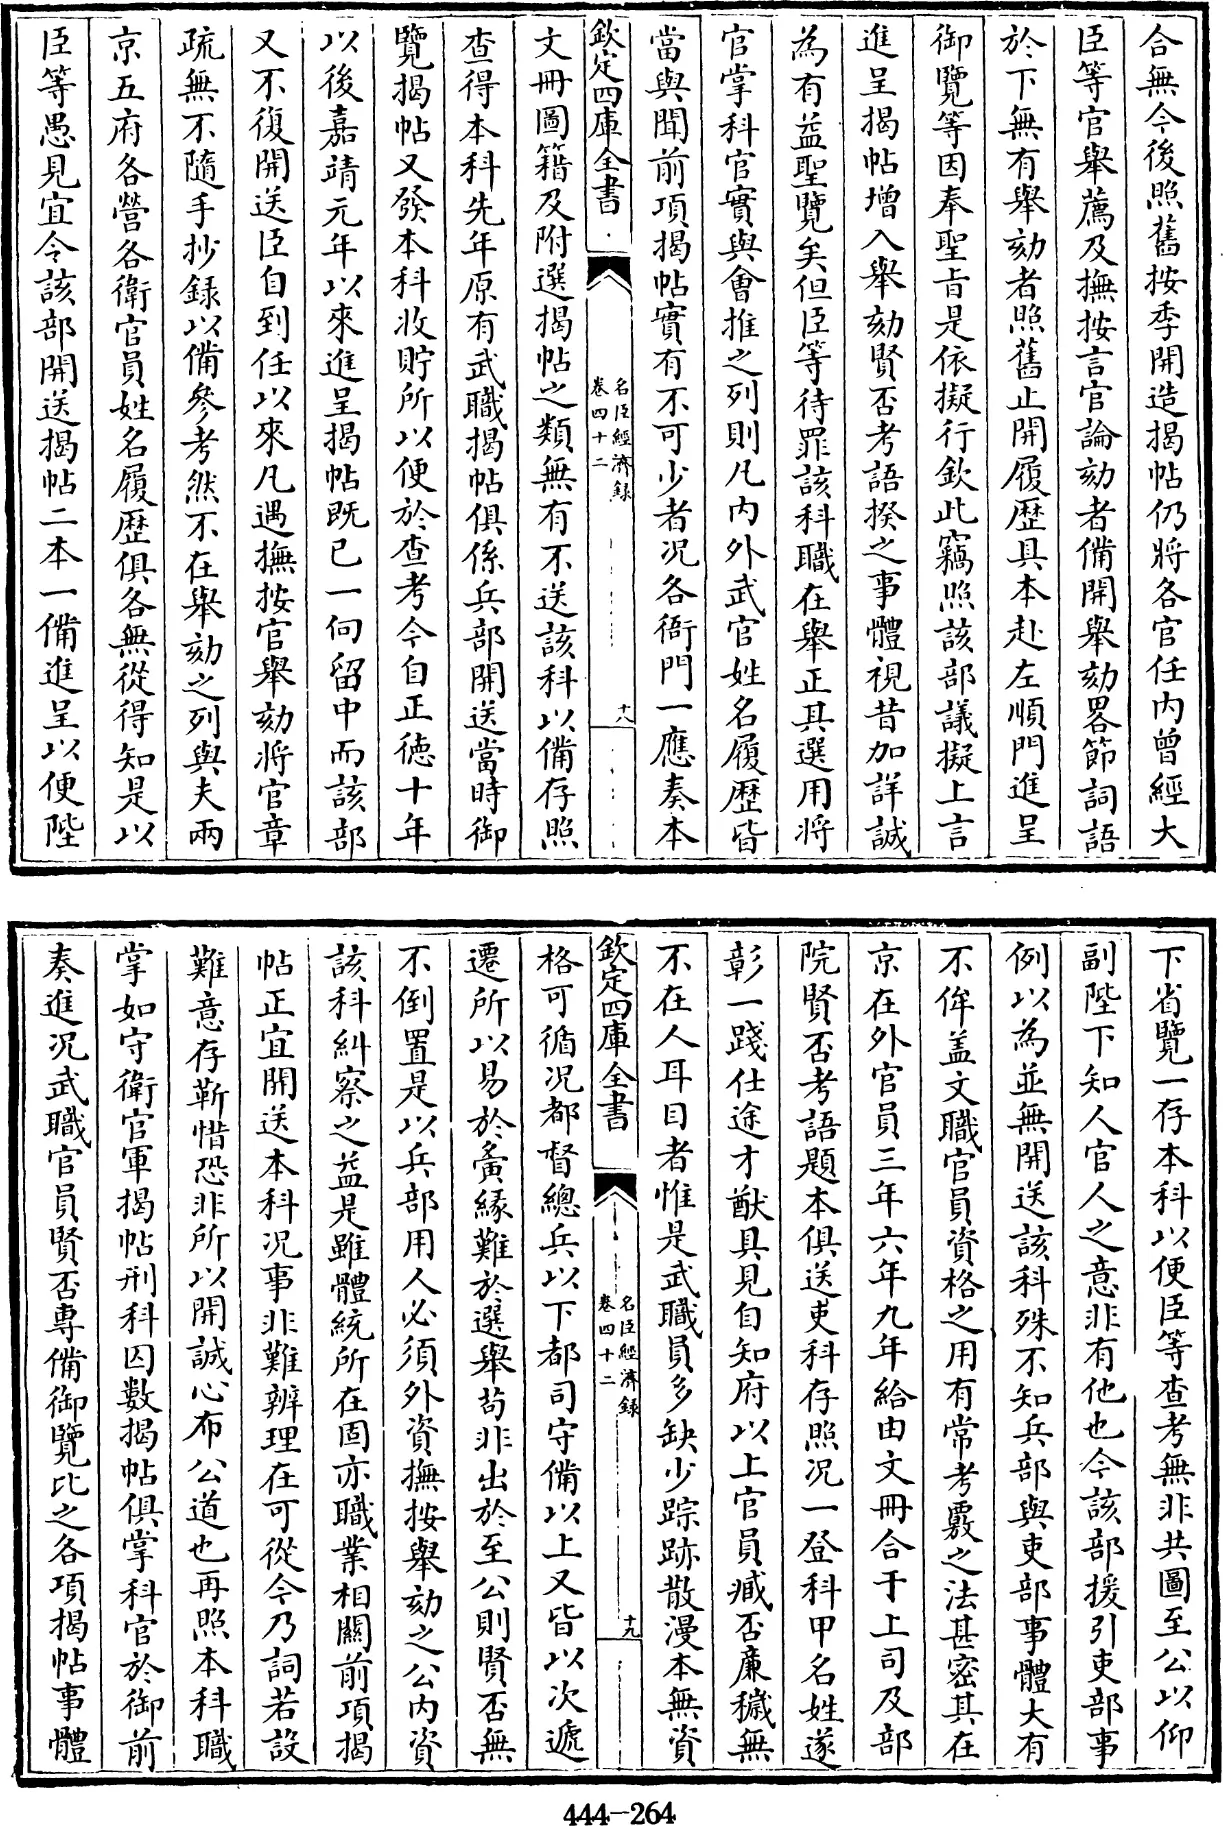 合無今後照舊按季開造揭帖仍將各官任内曾經大
臣等官舉薦及撫按言官論劾者備開舉劾畧節詞語
於下無有舉劾者照舊止開履歴具本赴左順門進呈
御覽等因奉聖旨是依擬行欽此竊照該部議擬上言
進呈揭帖增入舉劾賢否考語揆之事體視昔加詳誠
為有益聖覽矣但臣等待罪該科職在舉正其選用將
官掌科官實與會推之列則凡内外武官姓名履歴皆
當與聞前項揭帖實有不可少者况各衙門一應奏本
欽定四庫全書
名臣經濟録
卷四十二
十八
文冊圖籍及附選揭帖之類無有不送該科以備存照
查得本科先年原有武職揭帖俱係兵部開送當時御
覽揭帖又發本科收貯所以便於查考今自正徳十年
以後嘉靖元年以來進呈揭帖既已一向留中而該部
又不復開送臣自到任以來凡遇撫按官舉劾將官章
疏無不隨手抄錄以備參考然不在舉劾之列與夫兩
京五府各營各衛官員姓名履歴俱各無從得知是以
臣等愚見宜令該部開送揭帖二本一備進呈以便陛
下省覽一存本科以便臣等查考無非共圖至公以仰
副陛下知人官人之意非有他也今該部援引吏部事
例以為並無開送該科殊不知兵部與吏部事體大有
不侔盖文職官員資格之用有常考覈之法甚密其在
京在外官員三年六年九年給由文冊合于上司及部
院賢否考語題本俱送吏科存照况一登科甲名姓遂
彰一踐仕途才猷具見自知府以上官員臧否廉穢無
不在人耳目者惟是武職員多缺少踪跡散漫本無資
欽定四庫全書
名臣經濟録
卷四十二
十九
格可循况都督總兵以下都司守備以上又皆以次遞
遷所以易於夤緣難於選舉茍非出於至公則賢否無
不倒置是以兵部用人必須外資撫按舉劾之公内資
該科糾察之益是雖體統所在固亦職業相關前項揭
帖正宜開送本科况事非難辨理在可從今乃詞若設
難意存靳惜恐非所以開誠心布公道也再照本科職
掌如守衛官軍揭帖刑科囚數揭帖俱掌科官於御前
奏進况武職官員賢否專備御覽比之各項揭帖事體
444-264